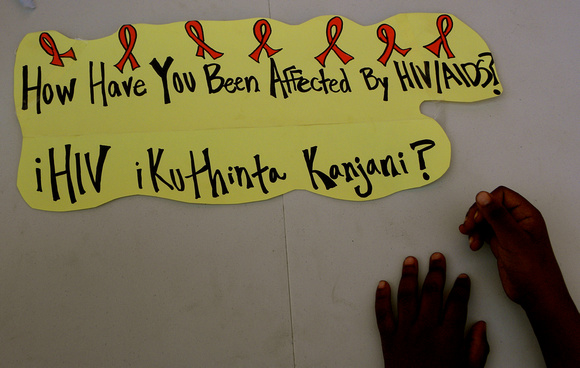 How Have You Been Affected By HIV/AIDS?
iHIV iKuthinta Kanjani?